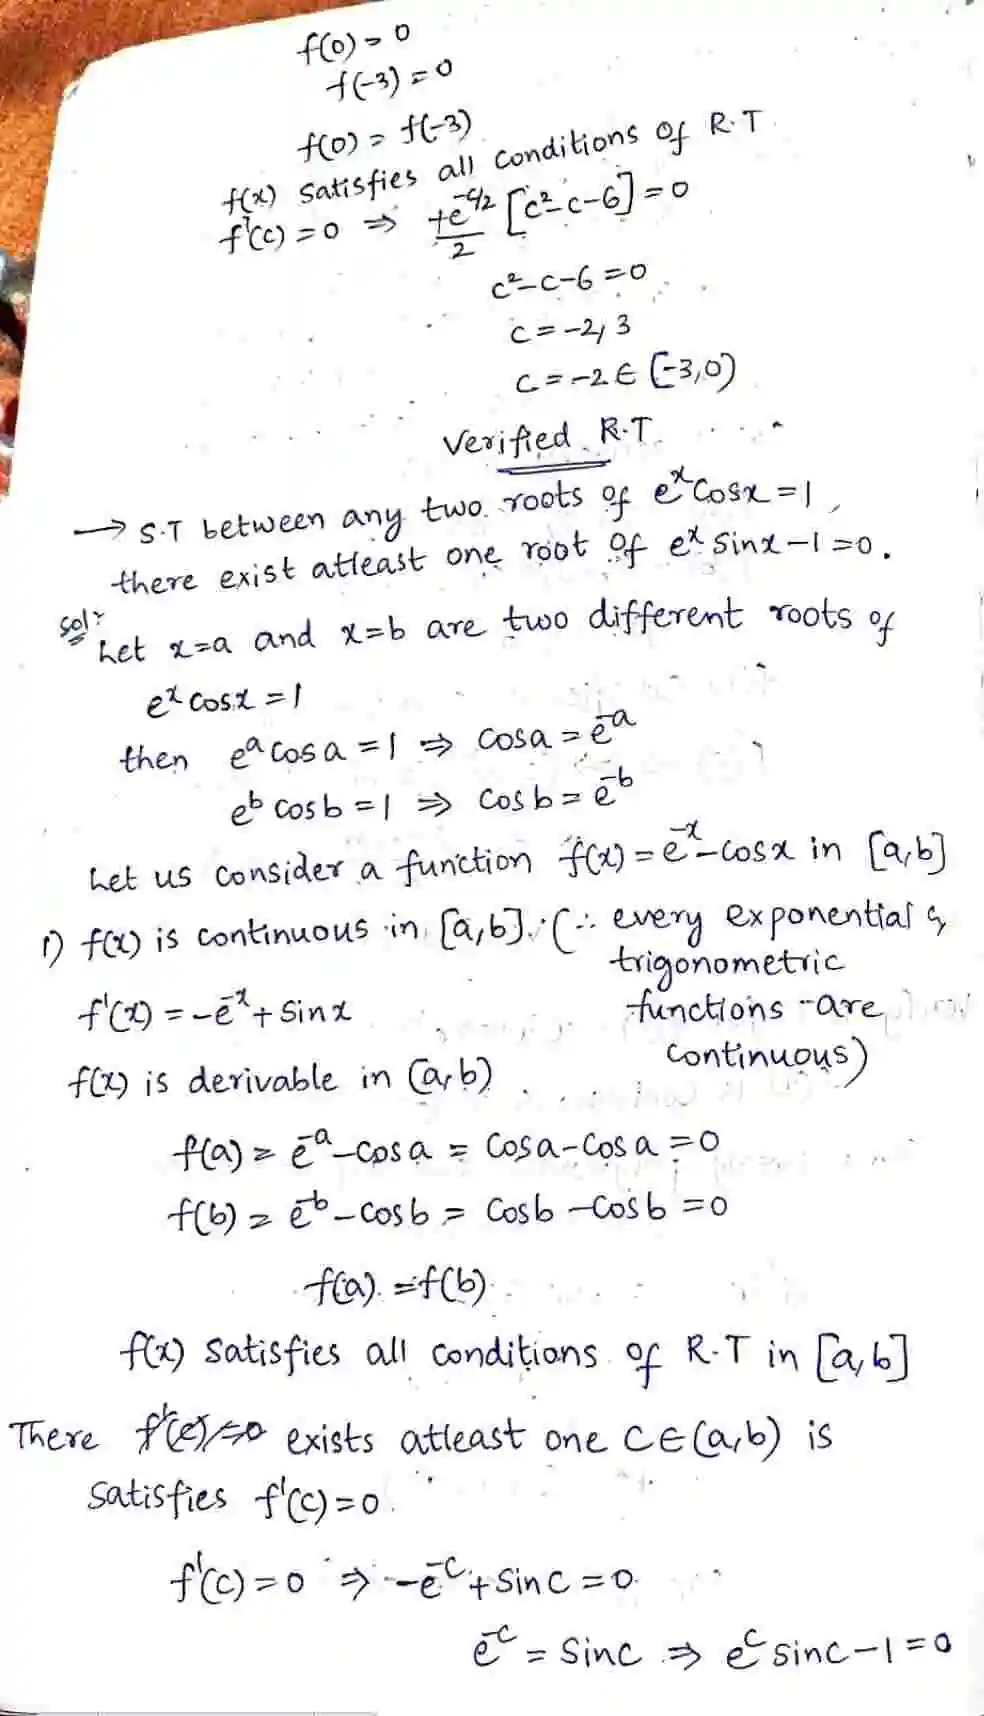 f(0) = 0
f(-3) = 0
f(0) = f(-3)
f(x) satisfies all conditions of R.T
f'(c) = 0 ⇒ +e^{-c/2}/2 [c²-c-6] = 0
c²-c-6 = 0
c = -2, 3
c = -2 ∈ (-3,0)
Verified R.T.
→ S.T between any two roots of e^x cosx = 1,
there exist atleast one root of e^x sinx - 1 = 0.
Sol:
Let x=a and x=b are two different roots of
e^x cosx = 1
then e^a cos a = 1 ⇒ cosa = e^{-a}
e^b cos b = 1 ⇒ cos b = e^{-b}
Let us consider a function f(x) = e^{-x} - cosx in [a,b]
1) f(x) is continuous in [a,b]. (∵ every exponential &
trigonometric
functions are
continuous)
f'(x) = -e^{-x} + sinx
f(x) is derivable in (a,b)
f(a) = e^{-a} - cos a = cosa - cos a = 0
f(b) = e^{-b} - cos b = cosb - cosb = 0
f(a) = f(b)
f(x) satisfies all conditions of R.T in [a,b]
There f'(c)=0 exists atleast one c∈(a,b) is
satisfies f'(c) = 0.
f'(c) = 0 ⇒ -e^{-c} + sinc = 0.
e^{-c} = sinc ⇒ e^c sinc - 1 = 0